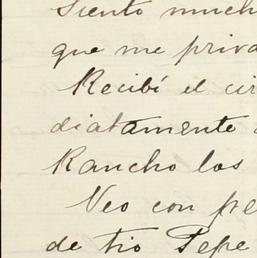 Siento much
que me priva
Recibí el cir
diatamente
Rancho los
Veo con pe
de tio Pepe